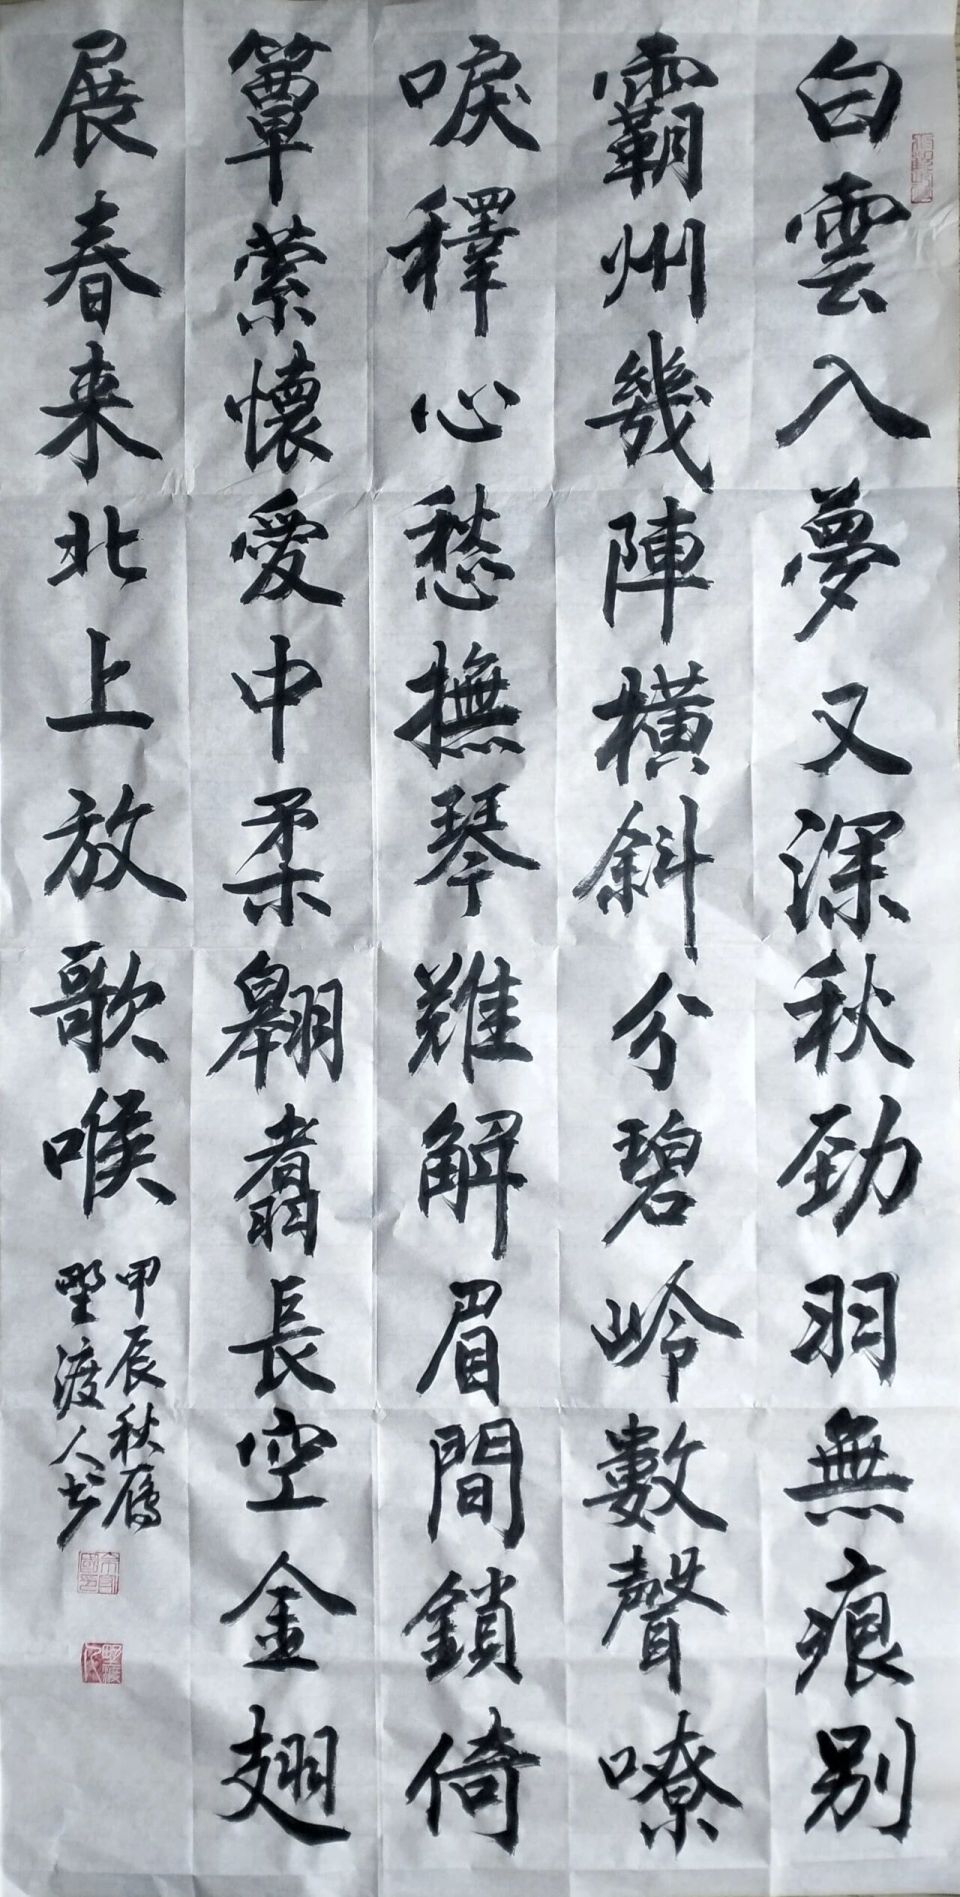 白雲入夢又深秋勁羽無痕別
霸州幾陣橫斜分碧岭數聲嘹
唳釋心愁撫琴難解眉間鎖倚
簟縈懷愛中柔翱翥長空金翅
展春来北上放歌喉
甲辰秋雁
野渡人书